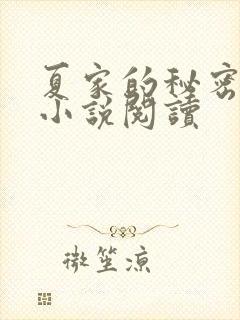 夏家的秘密
小說閱讀
微笙涼